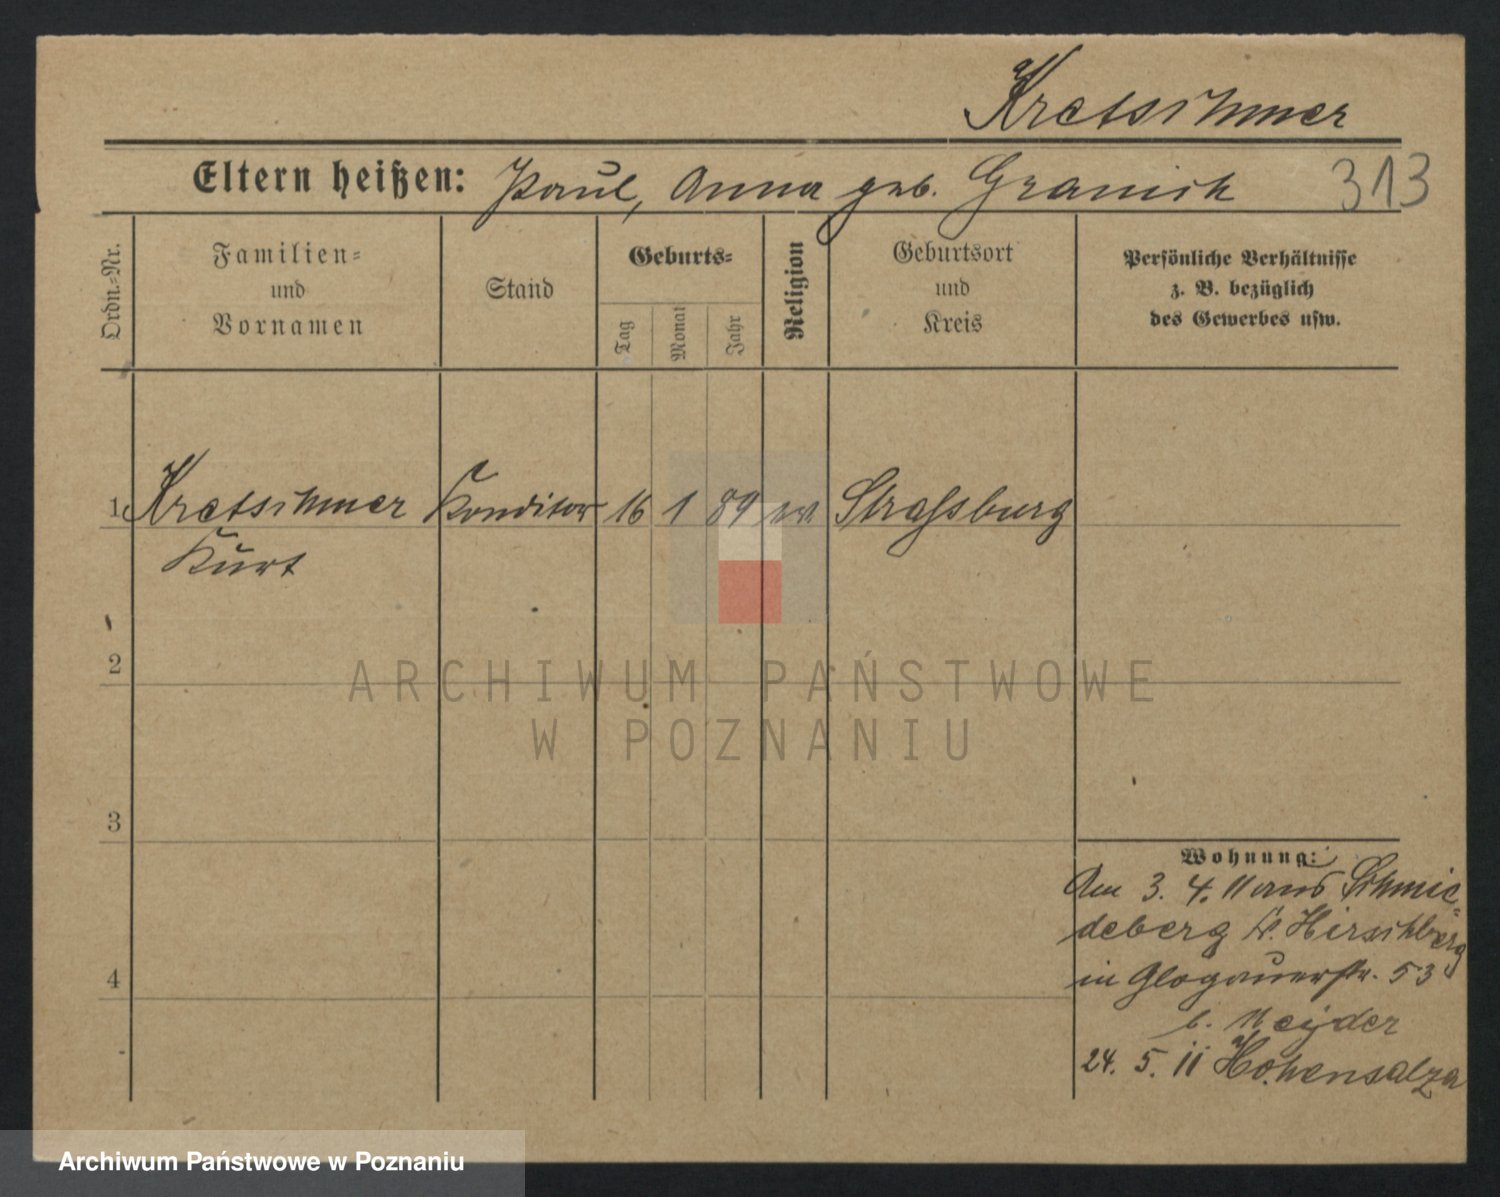 Kretschmer
Eltern heißen: Paul, Anna geb. Granich
313
Ordn.-Nr.
Familien-
und
Vornamen
Stand
Geburts-
Tag
Monat
Jahr
Religion
Geburtsort
und
Kreis
Persönliche Verhältnisse
z. B. bezüglich
des Gewerbes usw.
1 Kretschmer Konditor 16 1 89 ev Straßburg
Kurt
2
3
4
ARCHIWUM PAŃSTWOWE
W POZNANIU
Wohnung:
Am 3. 4. 11 aus Schmie-
deberg Kr. Hirschberg
in Glogauerstr. 53
b. Neyder
24. 5. 11 Hohensalza
Archiwum Państwowe w Poznaniu